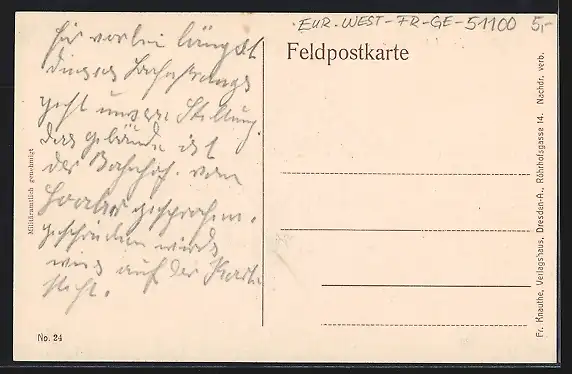 EUR.-WEST-FR-GE-51100 5,-
Feldpostkarte
vorbei längst
dieses Bahnstrangs
geht unsere Stellung.
das gebäude ist
der Bahnhof. vom
gesprochen.
geschrieben wird
wies auf der Karte
steht.
Militäramtlich genehmigt
No. 24
Fr. Knauthe, Verlagshaus, Dresden-A., Röhrhofsgasse 14. Nachdr. verb.